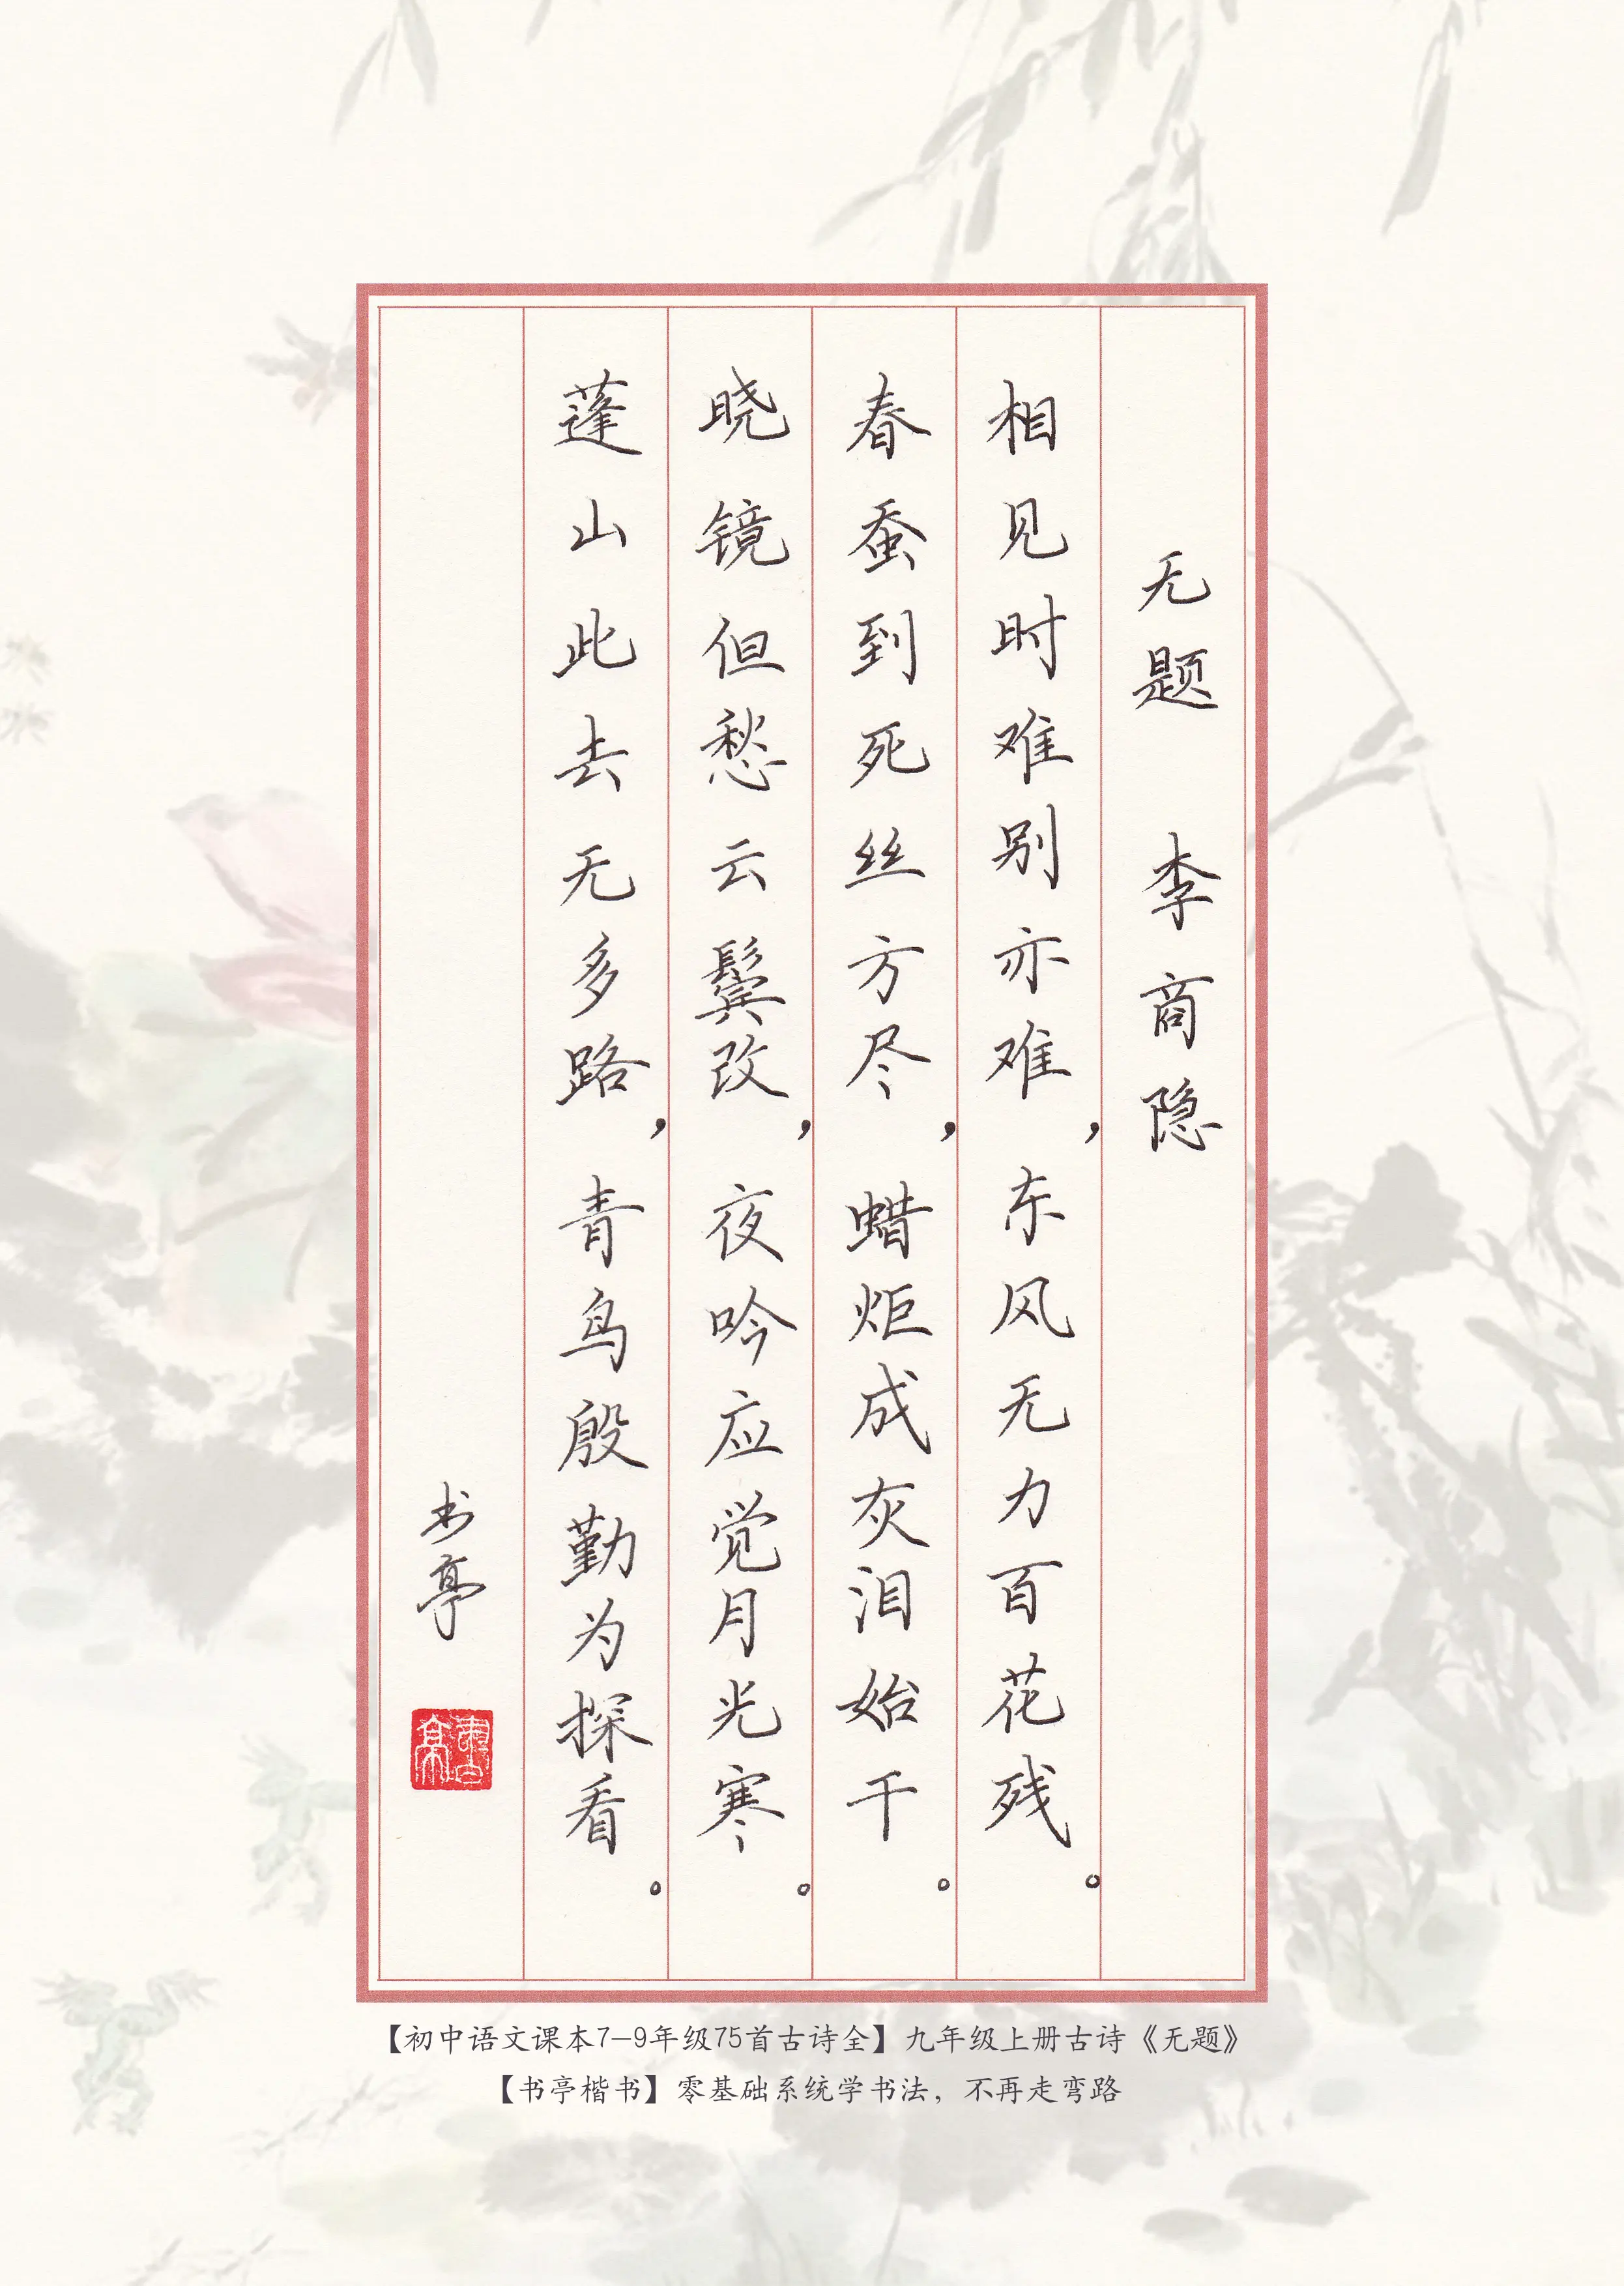 无题 李商隐
相见时难别亦难，东风无力百花残。
春蚕到死丝方尽，蜡炬成灰泪始干。
晓镜但愁云鬓改，夜吟应觉月光寒。
蓬山此去无多路，青鸟殷勤为探看。
书亭
書亭
【初中语文课本7-9年级75首古诗全】九年级上册古诗《无题》
【书亭楷书】零基础系统学书法，不再走弯路